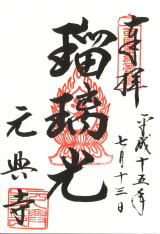 奉拝
平成十五年
七月十三日
瑠璃光
元興寺